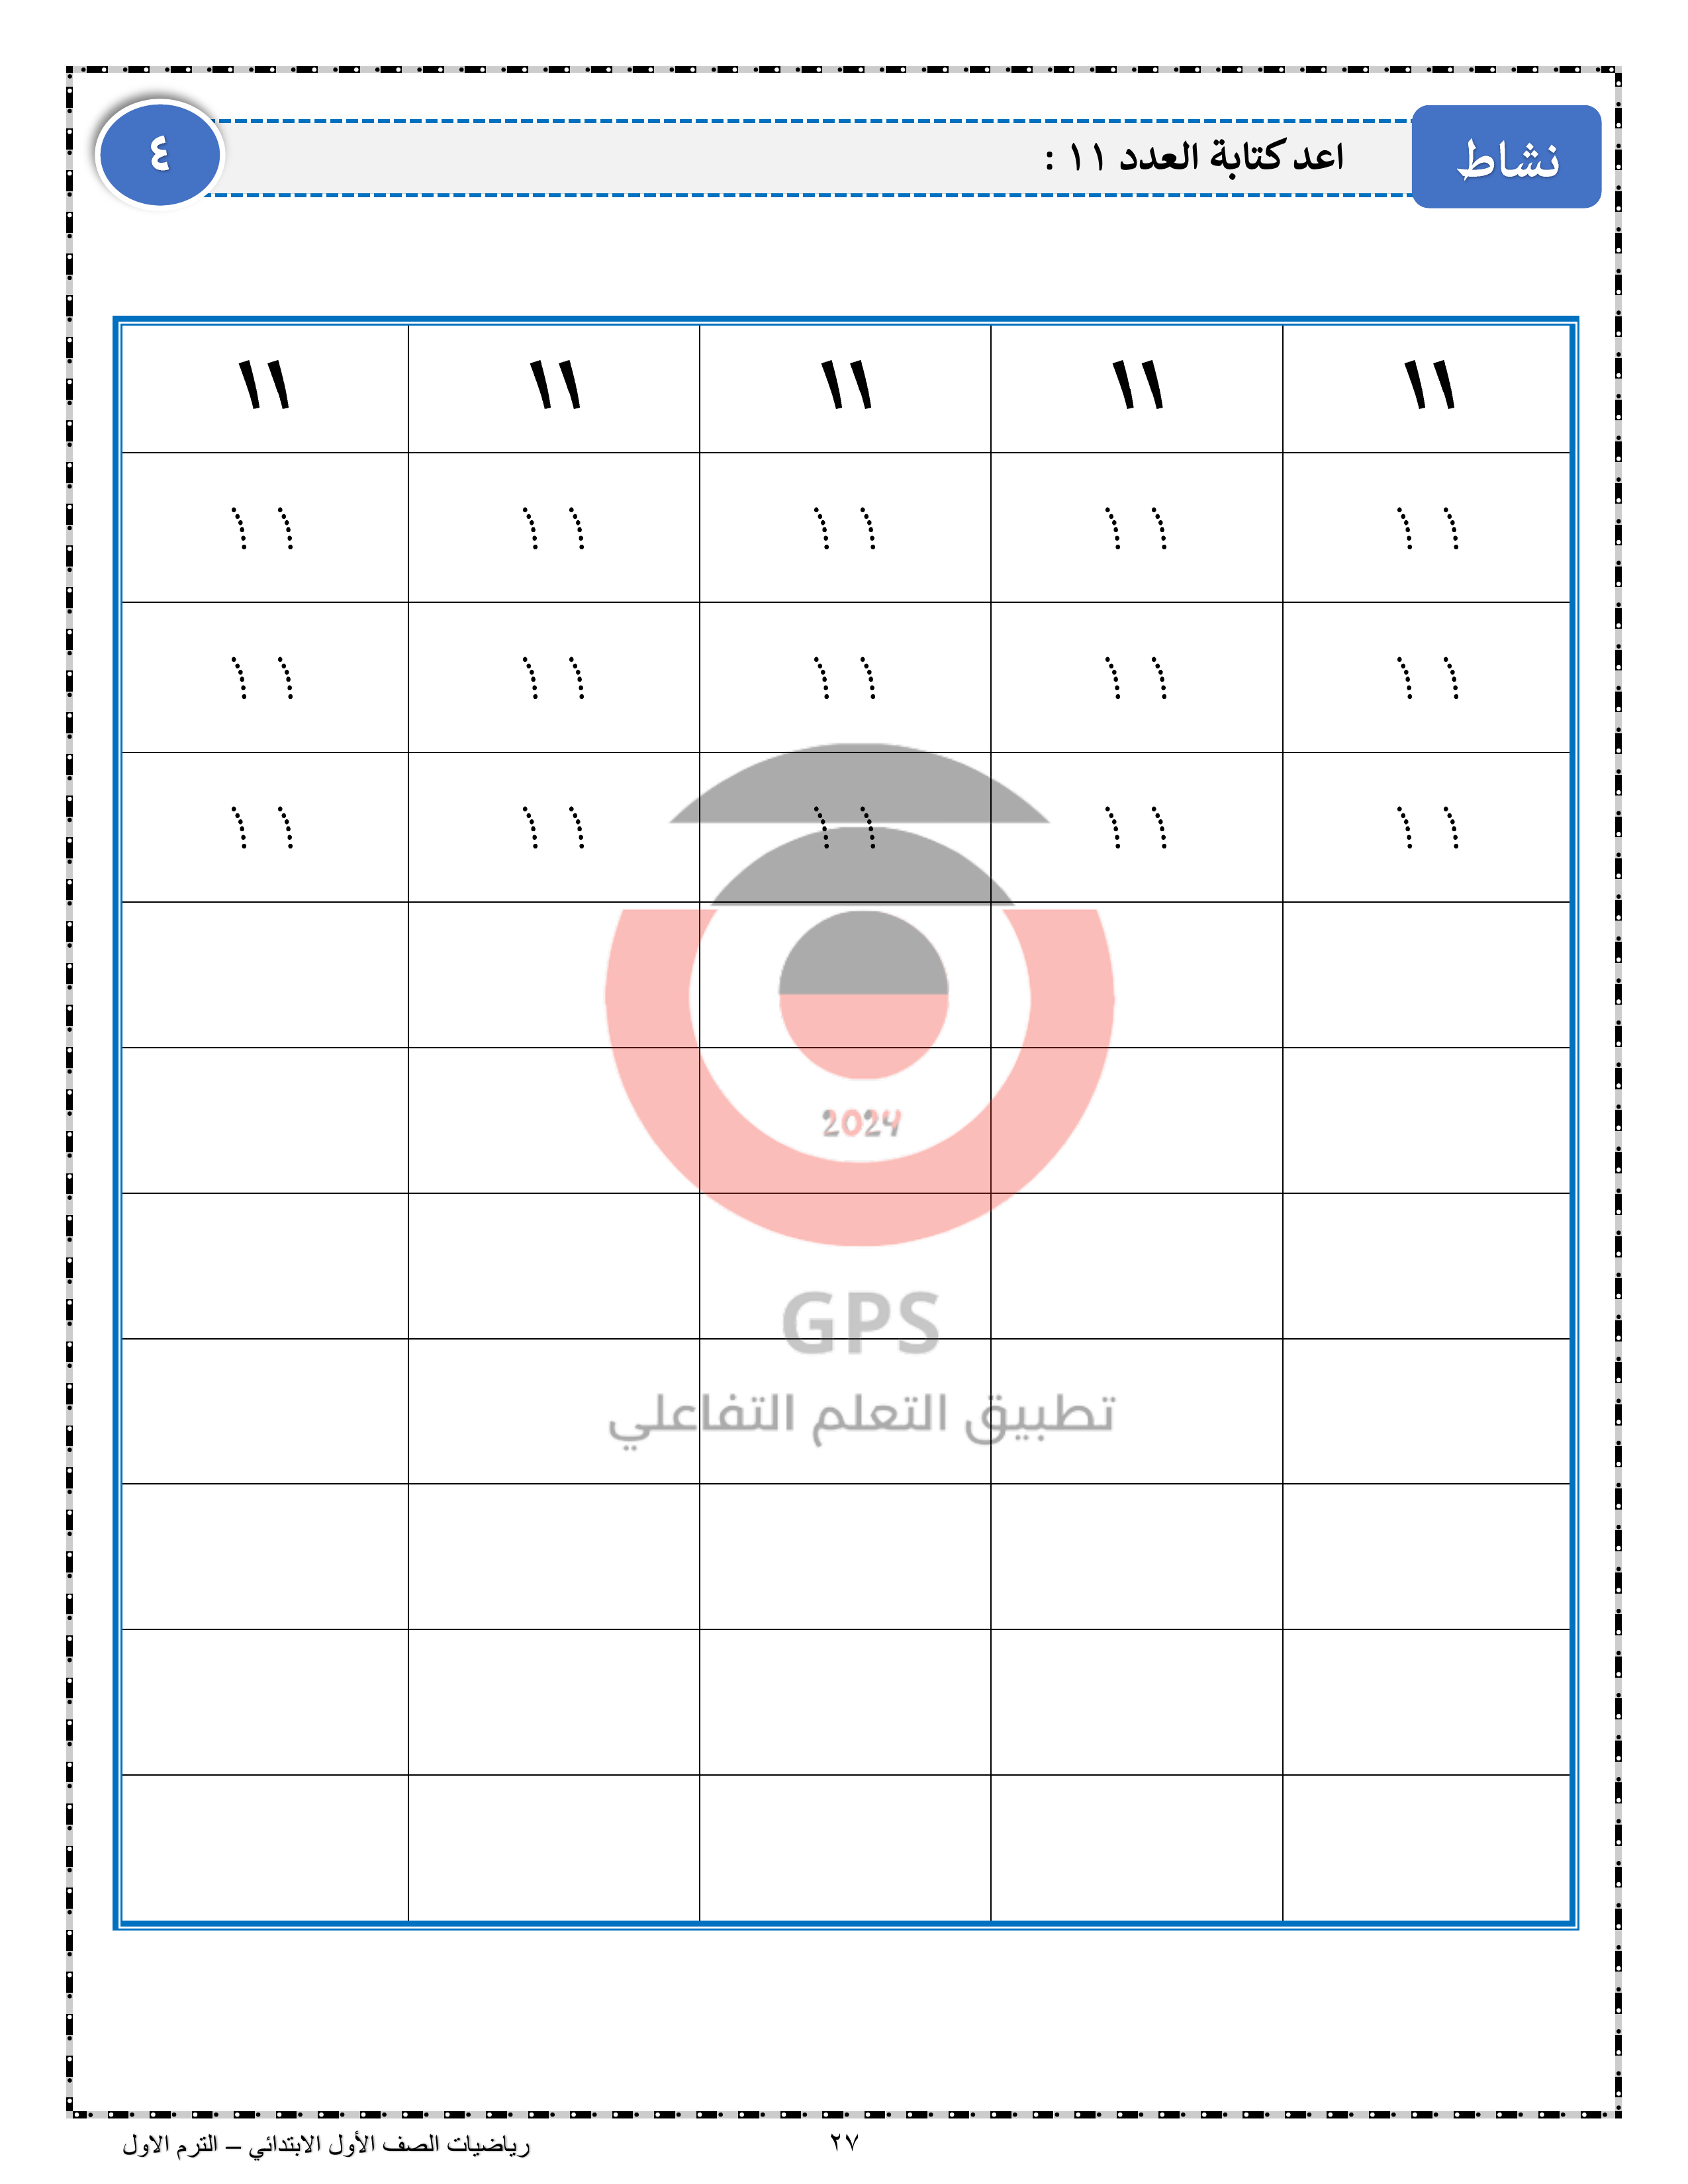 نشاط
اعد كتابة العدد ١١ :
٤
١١ ١١ ١١ ١١ ١١
١١ ١١ ١١ ١١ ١١
١١ ١١ ١١ ١١ ١١
١١ ١١ ١١ ١١ ١١
2024
GPS
تطبيق التعلم التفاعلي
٢٧
رياضيات الصف الأول الابتدائي – الترم الاول